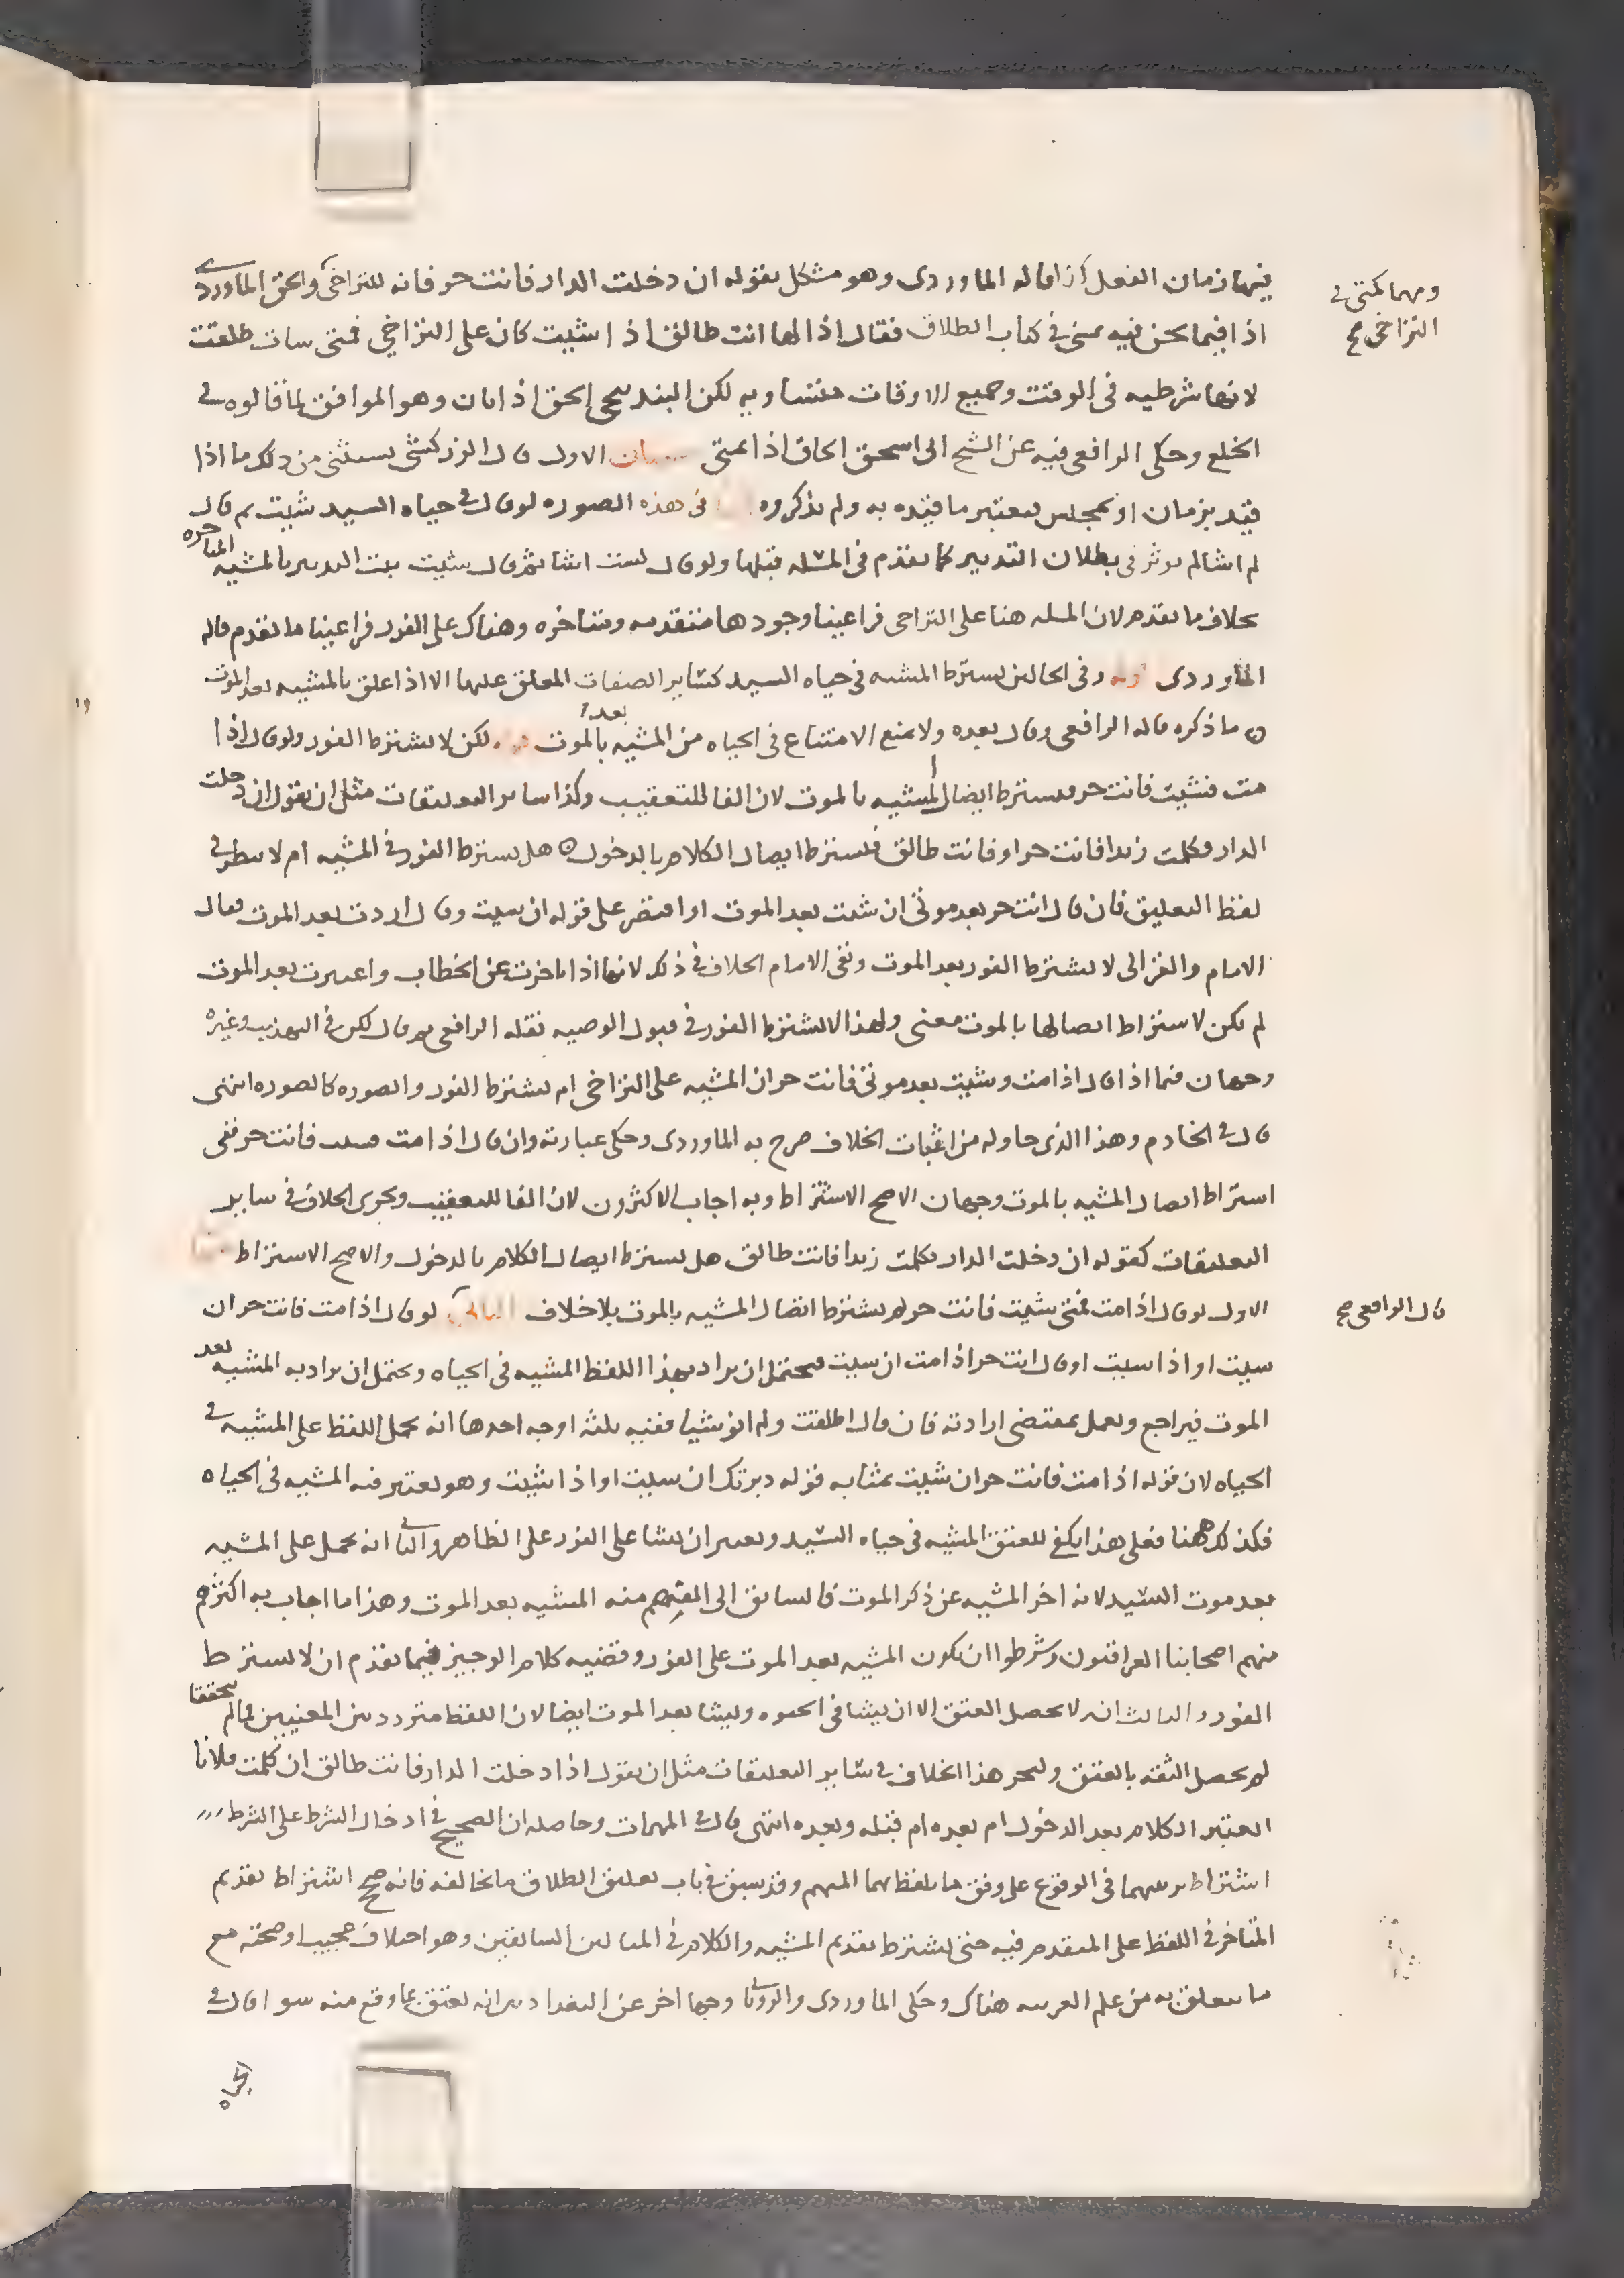 فيها زمان الفعل كذا قاله الماوردى وهو مشكل بقوله ان دخلت الدار فانت حر فانه للتراخي والحق الماوردي
ومهما كمتى في
التراخي صح
اذا فيما نحن فيه بمتى في كتاب الطلاق فقال اذا لها انت طالق اذا شيت كان على التراخي فمتى شات طلقت
لانها شرطيه في الوقت وجميع الاوقات متساويه لكن البندنيجي الحق اذا بان وهو الموافق لما قالوه في
الخلع وحكى الرافعي فيه عن الشيخ ابى اسحق الحاق اذا بمتى الاول قال الزركشي يستثنى من ذلك ما اذا
قيد بزمان او بمجلس فيعتبر ما قيده به ولم يذكروه في هذه الصوره لو قال في حياه السيد شيت ثم قال
لم اشا لم يوثر في بطلان التدبير كما تقدم في المسله قبلها ولو قال لست اشا ثم قال شيت ثبت التدبير بالمشيه المتاخره
بخلاف ما تقدم لان المسله هنا على التراخي فراعينا وجودها متقدمه ومتاخره وهناك على الفور فراعينا ما تقدم قاله
الماوردى وفي الحالين يشترط المشيه في حياه السيد كساير الصفات المعلق عليها الا اذا علق بالمشيه بعد الموت
ما ذكره قاله الرافعي وقال بعده ولا يمنع الامتناع في الحياه من المشيه بعد الموت لكن لا يشترط الفور ولو قال اذا
مت فشيت فانت حر فيشترط ايصال المشيه بالموت لان الفا للتعقيب وكذا ساير التعليقات مثل ان يقول ان دخلت
الدار فكلمت زيدا فانت حر او فانت طالق فيشترط ايصال الكلام بالدخول هل يشترط الفور في المشيه ام لا ينظر في
لفظ التعليق فان قال انت حر بعد موتي ان شيت بعد الموت او اقتصر على قوله ان شيت وقال اردت بعد الموت فقال
الامام والغزالى لا يشترط الفور بعد الموت ونفى الامام الخلاف في ذلك لانها اذا تاخرت عن الخطاب واعتبرت بعد الموت
لم يكن لاشتراط اتصالها بالموت معنى ولهذا لا يشترط الفور في قبول الوصيه نقله الرافعي ثم قال لكن في التهذيب وغيره
وجهان فيما اذا قال اذا مت وشيت بعد موتي فانت حر ان المشيه على التراخي ام يشترط الفور والصوره كالصوره انتهى
قال في الخادم وهذا الذي حاوله من اثبات الخلاف صرح به الماوردى وحكى عبارته وان قال اذا مت فشيت فانت حر ففى
اشتراط اتصال المشيه بالموت وجهان الاصح الاشتراط وبه اجاب الاكثرون لان الفا للتعقيب ويجرى الخلاف في ساير
التعليقات كقوله ان دخلت الدار فكلمت زيدا فانت طالق هل يشترط ايصال الكلام بالدخول والاصح الاشتراط
الاول لو قال اذا مت فمتى شيت فانت حر لم يشترط اتصال المشيه بالموت بلا خلاف الثاني لو قال اذا مت فانت حر ان
قال الرافعي صح
شيت او اذا شيت او قال انت حر اذا مت ان شيت فيحتمل ان يراد بهذا اللفظ المشيه في الحياه ويحتمل ان يراد به المشيه بعد
الموت فيراجع ويعمل بمقتضى ارادته فان قال اطلقت ولم انو شيا ففيه ثلثه اوجه احدها انه يحمل اللفظ على المشيه في
الحياه لان قوله اذا مت فانت حر ان شيت بمثابه قوله دبرتك ان شيت او اذا شيت وهو يعتبر فيه المشيه في الحياه
فكذلك ههنا فعلى هذا يكفي للعتق المشيه في حياه السيد ويعتبر ان يشا على الفور على الظاهر والثاني انه يحمل على المشيه
بعد موت السيد لانه اخر المشيه عن ذكر الموت فالسابق الى الفهم منه المشيه بعد الموت وهذا ما اجاب به اكثرهم
منهم اصحابنا العراقيون وشرطوا ان يكون المشيه بعد الموت على الفور وقضيه كلام الوجيز فيما تقدم ان لا يشترط
الفور والثالث انه لا يحصل العتق الا ان يشا في الحيوه ويشا بعد الموت ايضا لان اللفظ متردد بين المعنيين فما لم يتحققا
لم يحصل الثقه بالعتق وليجر هذا الخلاف في ساير التعليقات مثل ان يقول اذا دخلت الدار فانت طالق ان كلمت فلانا
المعتبر الكلام بعد الدخول ام بعده ام قبله وبعده انتهى قال في المهمات وحاصله ان الصحيح في ادخال الشرط على الشرط
اشتراط في الوقوع على وفق ما تلفظ بهما المبهم وقد سبق في باب تعليق الطلاق ما يخالفه فانه صحح اشتراط تقديم
المتاخر في اللفظ على المتقدم فيه حتى يشترط تقديم المشيه والكلام في المثالين السابقين وهو اختلاف عجيب اوضحته مع
ما يتعلق به من علم العربيه هناك وحكى الماوردى والروياني وجها اخر عن البغداديين انه يعتق بما وقع منه سوا قال في
الحياه